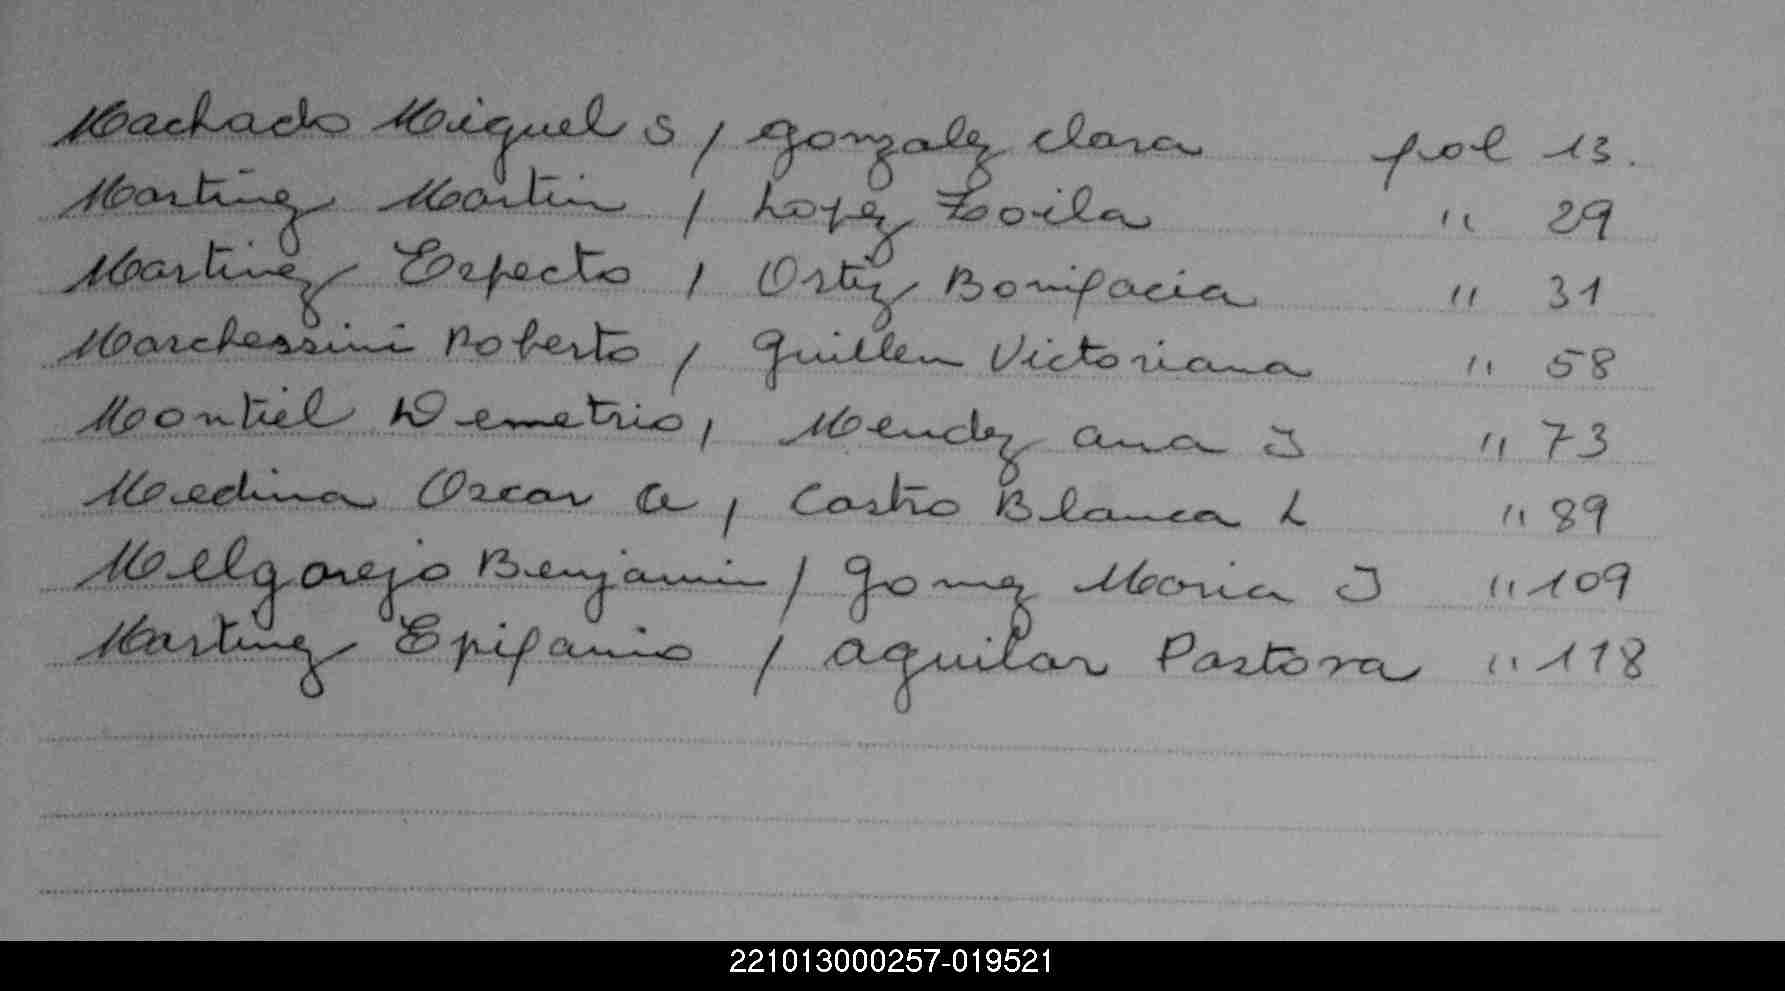 Machado Miguel S / Gonzalez Clara fol 13.
Martinez Martin / Lopez Zoila " 29
Martinez Expecto / Ortiz Bonifacia " 31
Marchessini Roberto / Guillen Victoriana " 58
Montiel Demetrio, Mendez Ana I " 73
Medina Oscar A, Castro Blanca L " 89
Melgarejo Benjamin / Gomez Maria I " 109
Martinez Epifanio / Aguilar Pastora " 118
221013000257-019521